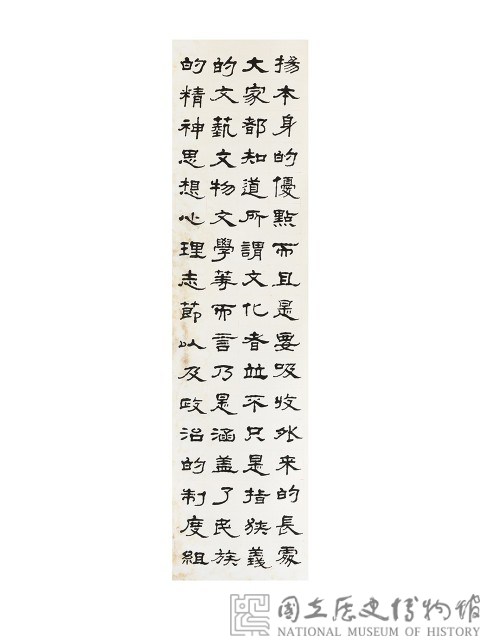 揚本身的優點而且是要吸收外來的長處
大家都知道所謂文化者並不只是指狹義
的文藝文物文學等而言乃是涵蓋了民族
的精神思想心理志節以及政治的制度組
國立歷史博物館
NATIONAL MUSEUM OF HISTORY